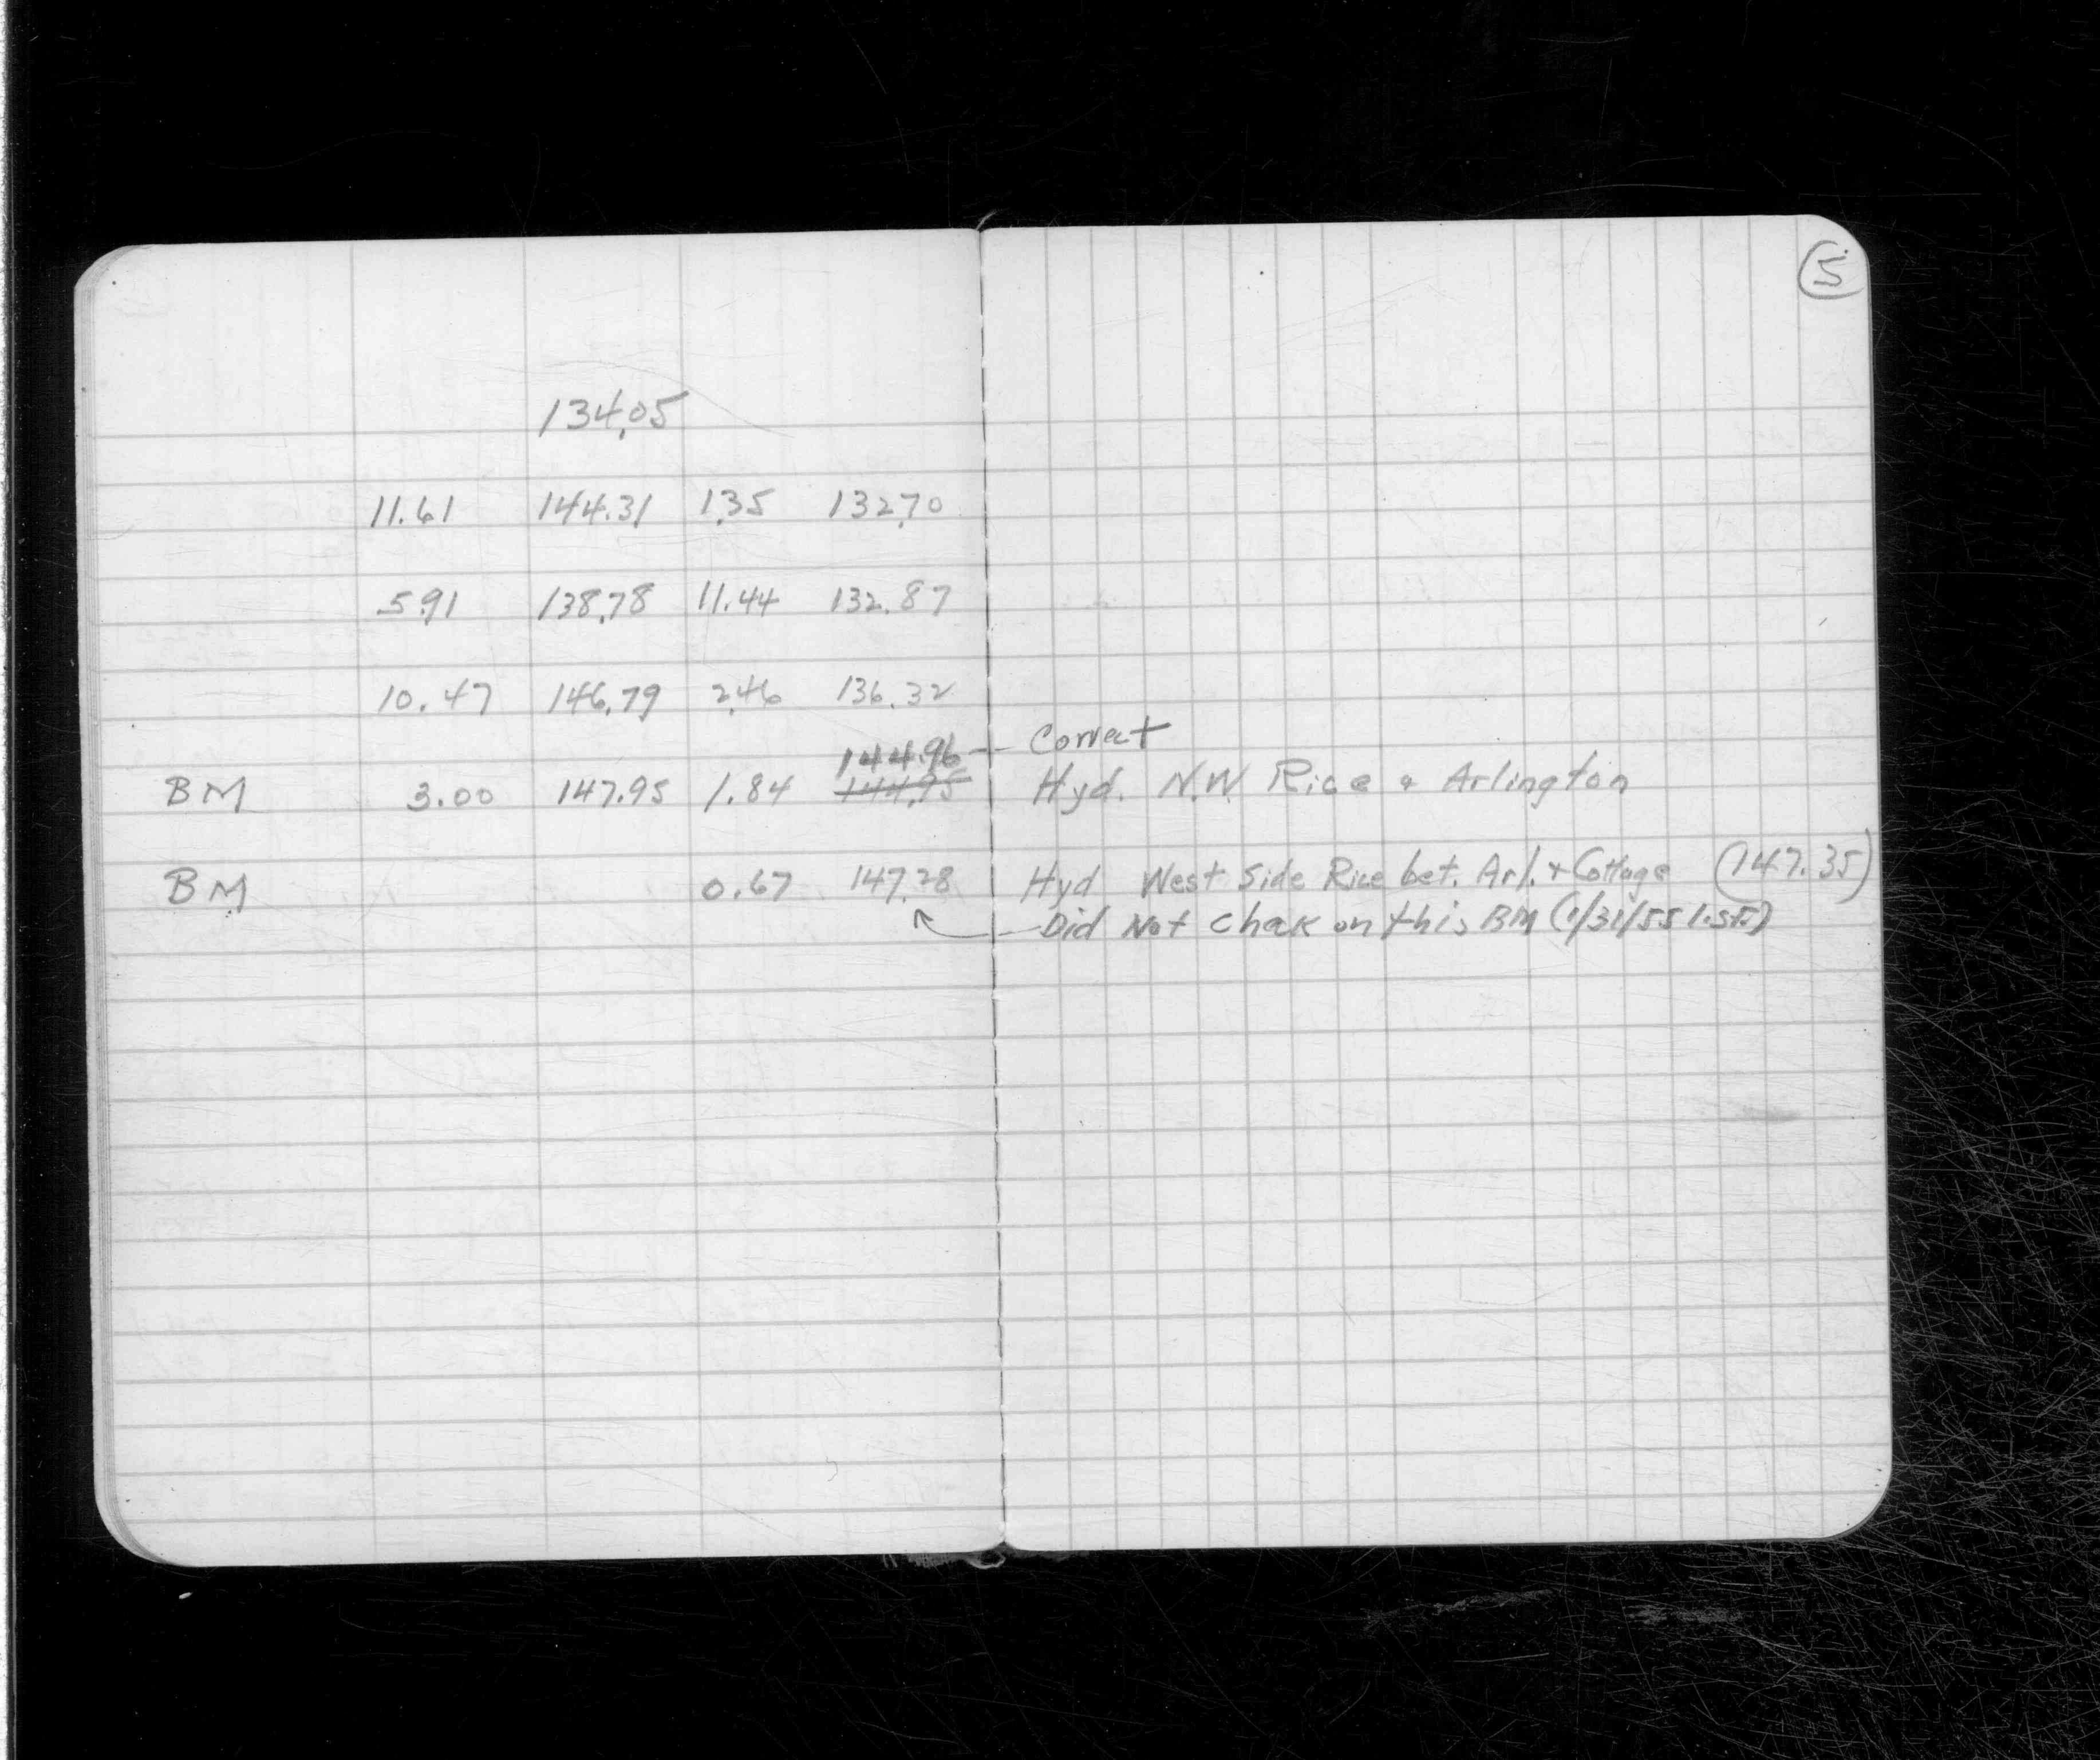 5
134.05
11.61 144.31 1.35 132.70
5.91 138.78 11.44 132.87
10.47 146.79 2.46 136.32
144.96 - Correct
BM 3.00 147.95 1.84 144.95 Hyd. N.W. Rice & Arlington
BM 0.67 147.28 Hyd West Side Rice bet. Arl. & Cottage (147.35)
Did Not Check on this BM (1/31/55